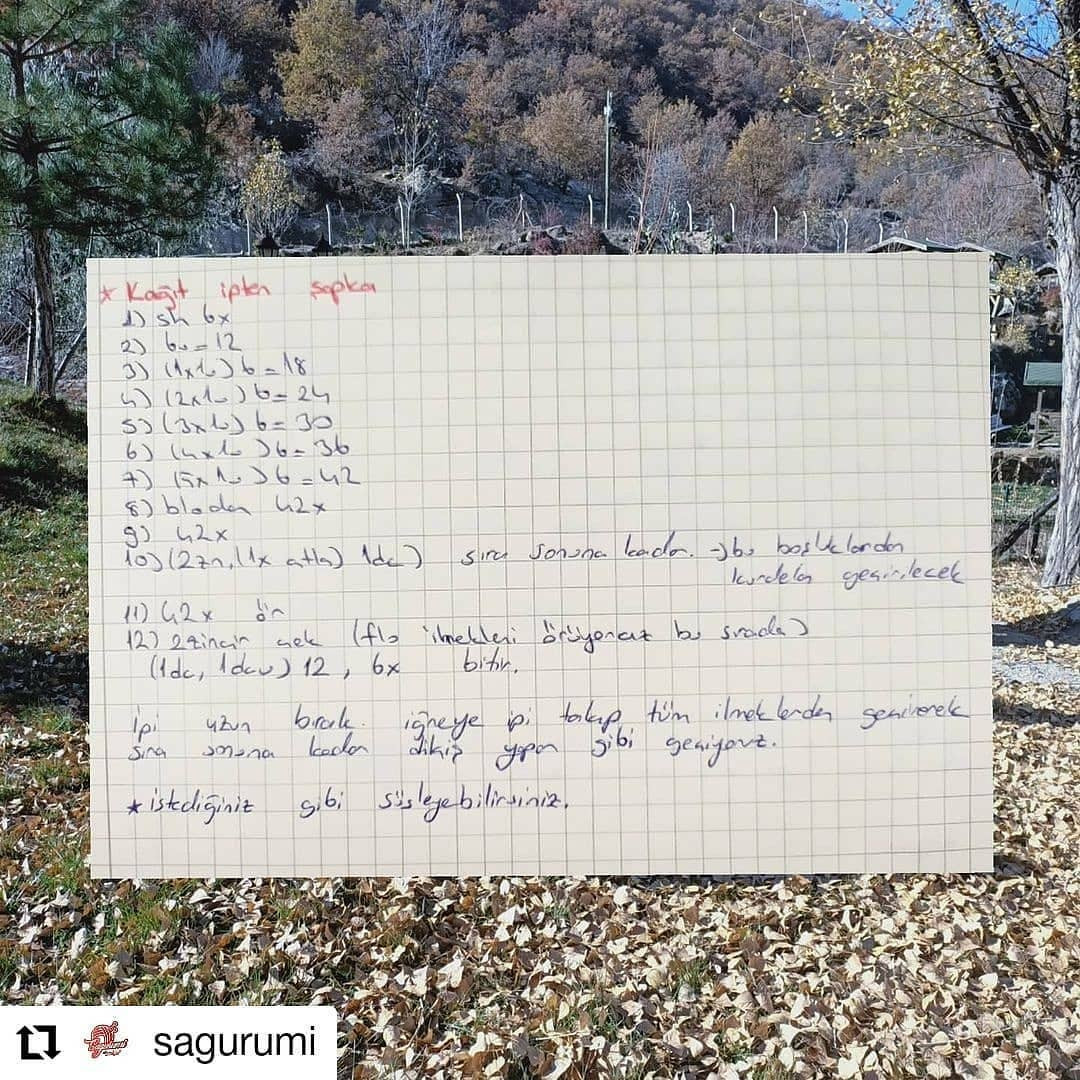 * Kağıt ipten şapka
1) sh 6x
2) 6v = 12
3) (1x1v) 6 = 18
4) (2x1v) 6 = 24
5) (3x1v) 6 = 30
6) (4x1v) 6 = 36
7) (5x1v) 6 = 42
8) blodan 42x
9) 42x
10) (2zn, (1x atla) 1dc) sıra sonuna kadar. → bu boşluklardan
kurdela geçirilecek
11) 42x ör
12) 2 zincir çek (flo ilmekleri örüyoruz bu sırada)
(1dc, 1dcv) 12, 6x bitir.
İpi uzun bırak. iğneye ipi takıp tüm ilmeklerden geçirerek
sıra sonuna kadar dikiş yapar gibi geçiyoruz.
* istediğiniz gibi süsleyebilirsiniz.
sagurumi